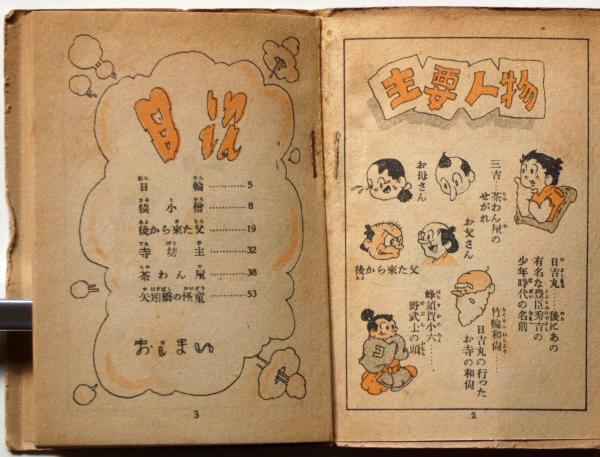 主要人物
日吉丸……後にあの
有名な豊臣秀吉の
少年時代の名前
三吉…茶わん屋の
せがれ
お父さん
お母さん
後から來た父
竹輪和尚……
日吉丸の行った
お寺の和尚
蜂須賀小六……
野武士の頭
2
目次
日輪…………5
猿小僧…………8
後から來た父…………19
寺坊主…………32
茶わん屋…………38
矢矧橋の怪童…………53
おしまい
3